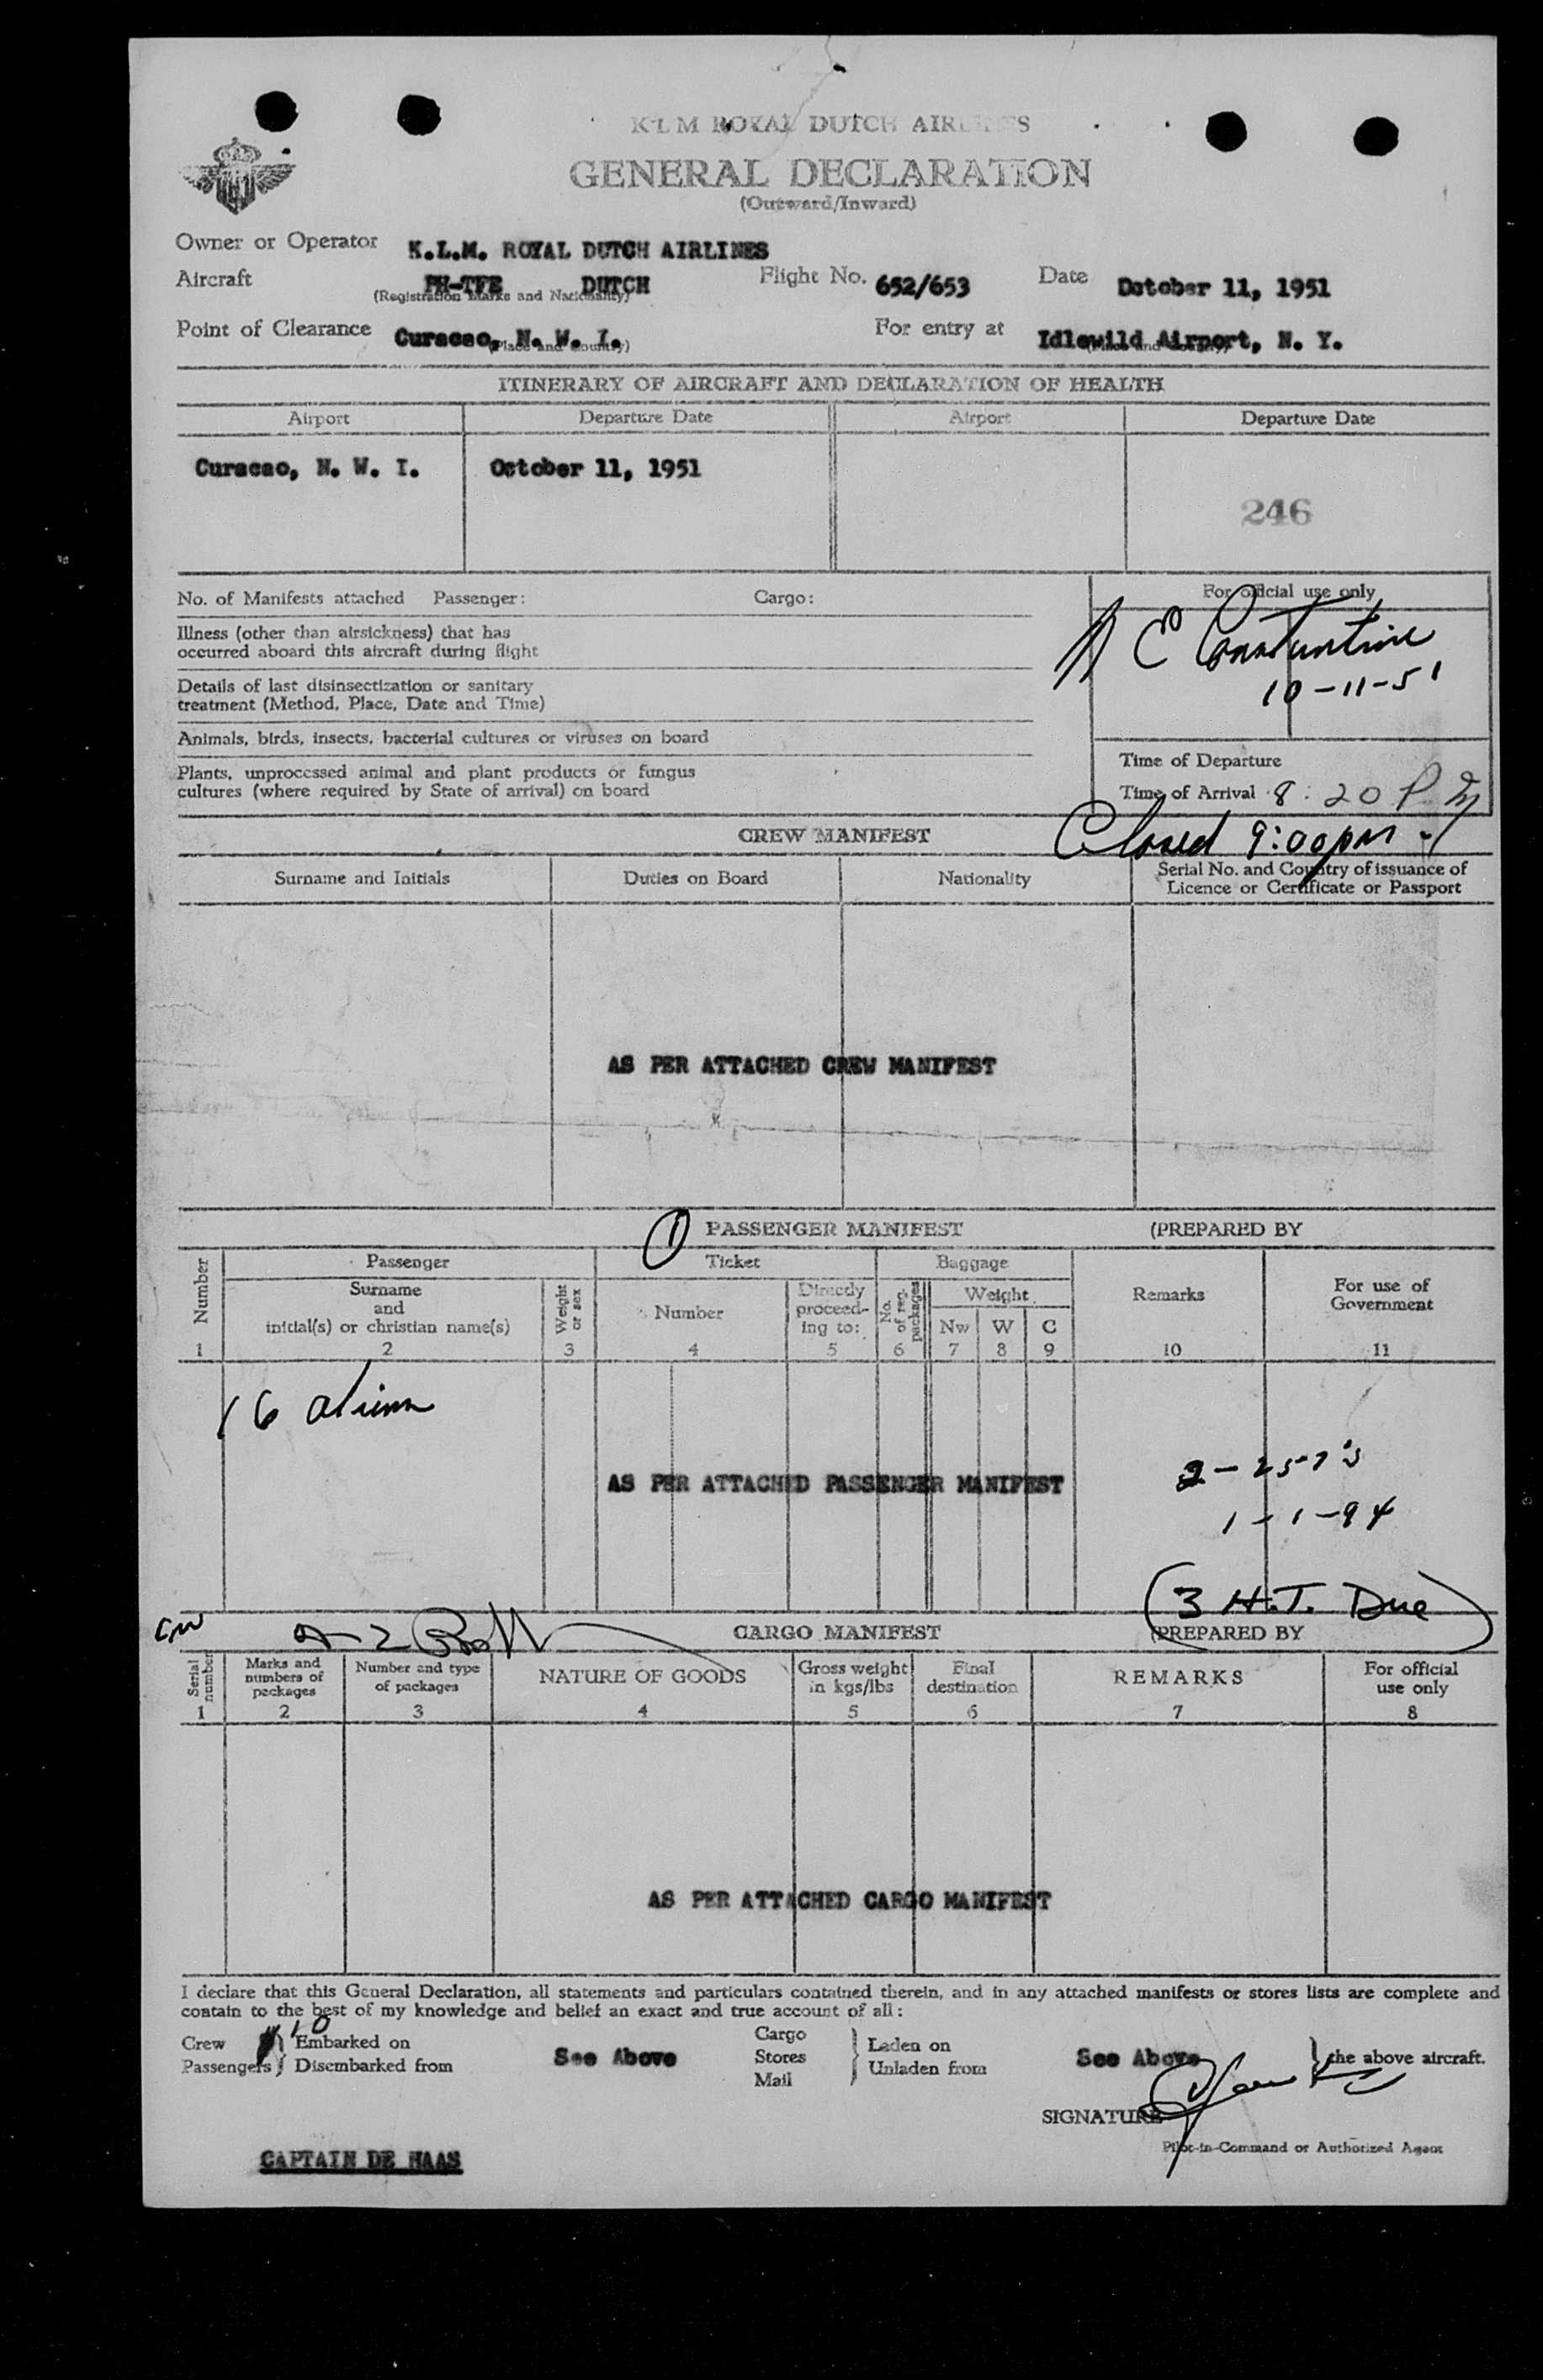 KLM ROYAL DUTCH AIRLINES
GENERAL DECLARATION
(Outward/Inward)
Owner or Operator K.L.M. ROYAL DUTCH AIRLINES
Aircraft PH-TFE DUTCH Flight No. 652/653 Date October 11, 1951
(Registration Marks and Nationality)
Point of Clearance Curacao, N. W. I. For entry at Idlewild Airport, N. Y.
(Place and Country)
ITINERARY OF AIRCRAFT AND DECLARATION OF HEALTH
Airport Departure Date Airport Departure Date
Curacao, N. W. I. October 11, 1951
246
No. of Manifests attached Passenger: Cargo:
For official use only
Illness (other than airsickness) that has
occurred aboard this aircraft during flight
C Constantine
10-11-51
Details of last disinsectization or sanitary
treatment (Method, Place, Date and Time)
Animals, birds, insects, bacterial cultures or viruses on board
Time of Departure
Plants, unprocessed animal and plant products or fungus
cultures (where required by State of arrival) on board
Time of Arrival 8:20 PM
Closed 9:00pm
CREW MANIFEST
Surname and Initials Duties on Board Nationality Serial No. and Country of issuance of
Licence or Certificate or Passport
AS PER ATTACHED CREW MANIFEST
1 PASSENGER MANIFEST (PREPARED BY
Number Passenger Ticket Baggage Remarks For use of
Government
Surname
and
initial(s) or christian name(s)
Weight
or sex
Number
Directly
proceed-
ing to:
No.
of reg.
packages
Weight
Nw W C
1 2 3 4 5 6 7 8 9 10 11
16 aliens
2-257's
AS PER ATTACHED PASSENGER MANIFEST
1-1-94
(3 H.T. Due)
CARGO MANIFEST (PREPARED BY
Serial
number
Marks and
numbers of
packages
Number and type
of packages
NATURE OF GOODS
Gross weight
in kgs/lbs
Final
destination
REMARKS
For official
use only
1 2 3 4 5 6 7 8
AS PER ATTACHED CARGO MANIFEST
I declare that this General Declaration, all statements and particulars contained therein, and in any attached manifests or stores lists are complete and
contain to the best of my knowledge and belief an exact and true account of all:
Crew 10 Embarked on
Passengers Disembarked from
See Above
Cargo
Stores
Mail
Laden on
Unladen from
See Above
the above aircraft.
SIGNATURE
Pilot-in-Command or Authorized Agent
CAPTAIN DE HAAS